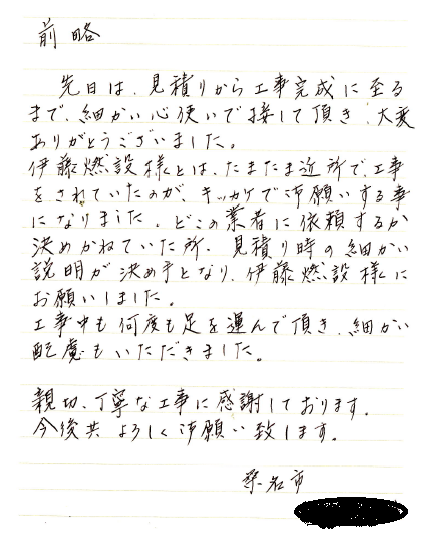 前略
先日は、見積りから工事完成に至る
まで、細かい心使いで接して頂き、大変
ありがとうございました。
伊藤燃設様とは、たまたま近所で工事
をされていたのが、キッカケで御願いする事
になりました。どこの業者に依頼するか
決めかねていた所、見積り時の細かい
説明が決め手となり、伊藤燃設様に
お願いしました。
工事中も何度も足を運んで頂き、細かい
配慮もいただきました。
親切、丁寧な工事に感謝しております。
今後共よろしく御願い致します。
桑名市